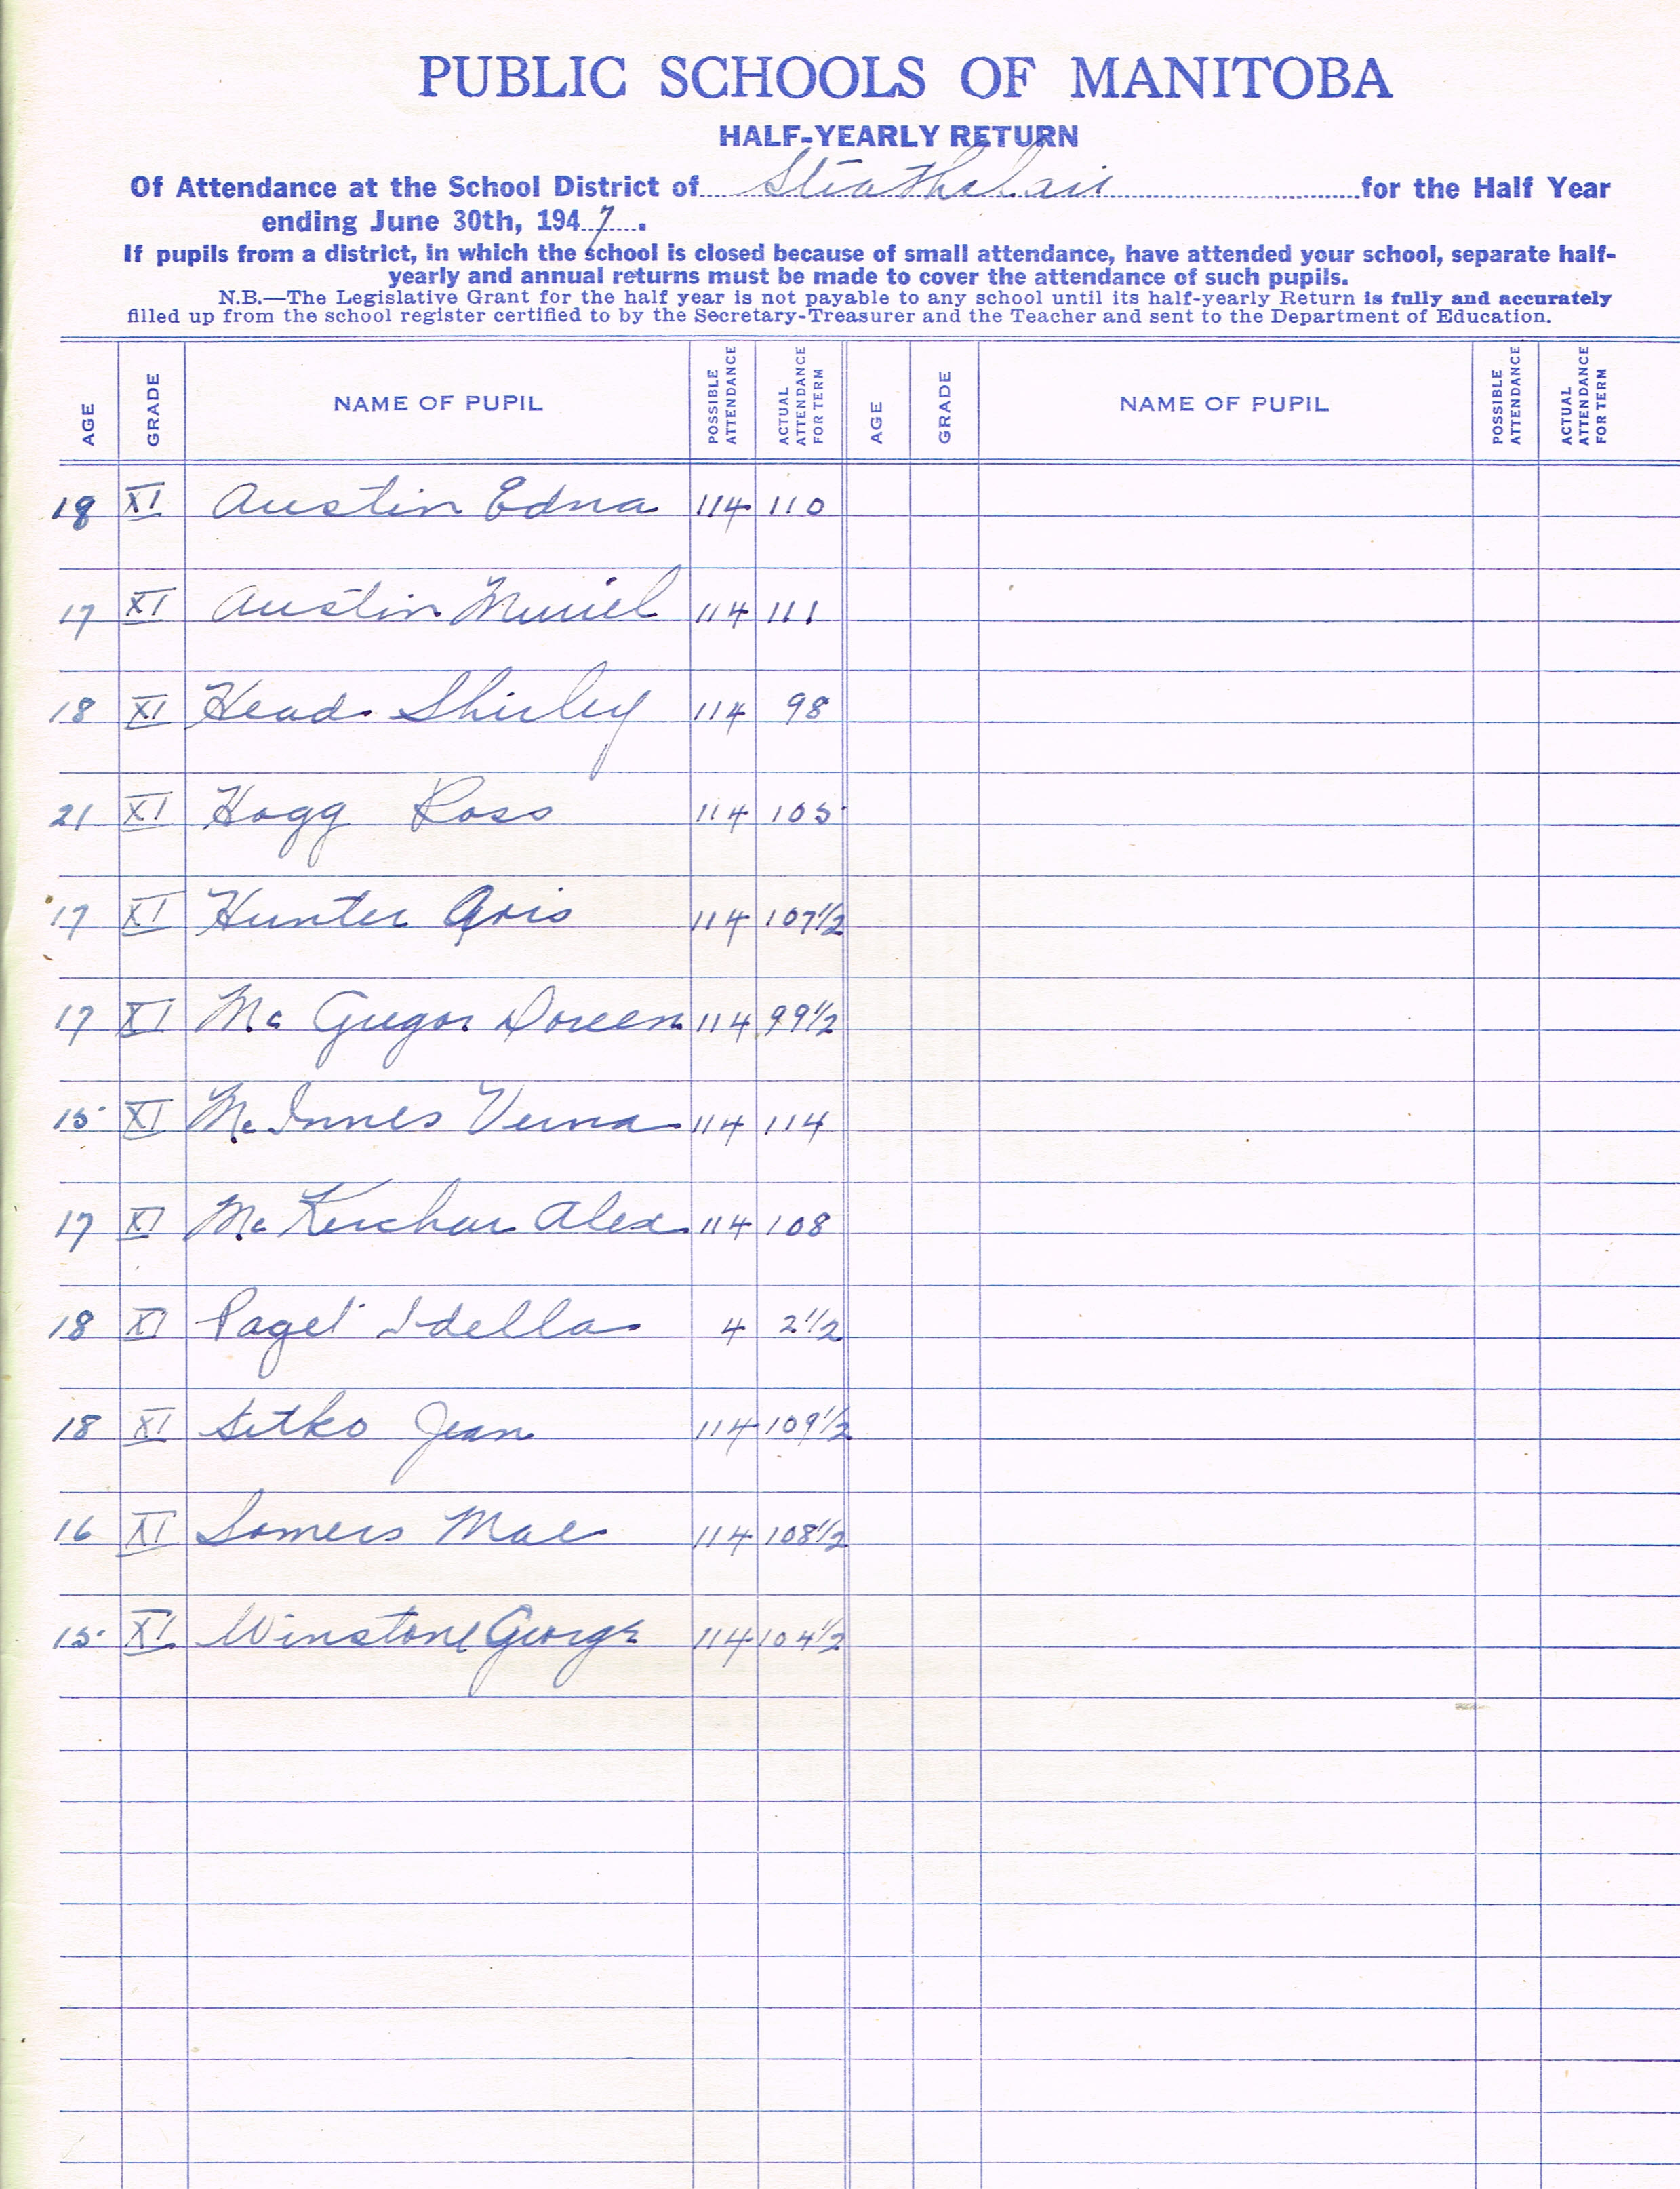 PUBLIC SCHOOLS OF MANITOBA
HALF-YEARLY RETURN
Of Attendance at the School District of Strathclair for the Half Year
ending June 30th, 1947.
If pupils from a district, in which the school is closed because of small attendance, have attended your school, separate half-
yearly and annual returns must be made to cover the attendance of such pupils.
N.B.—The Legislative Grant for the half year is not payable to any school until its half-yearly Return is fully and accurately
filled up from the school register certified to by the Secretary-Treasurer and the Teacher and sent to the Department of Education.
AGE GRADE NAME OF PUPIL POSSIBLE ATTENDANCE ACTUAL ATTENDANCE FOR TERM AGE GRADE NAME OF PUPIL POSSIBLE ATTENDANCE ACTUAL ATTENDANCE FOR TERM
18 XI Austin Edna 114 110
17 XI Austin Muriel 114 111
18 XI Head Shirley 114 98
21 XI Hogg Ross 114 105
17 XI Hunter Avis 114 107 1/2
17 XI Mc Gregor Doreen 114 99 1/2
15 XI Mc Innes Verna 114 114
17 XI Mc Kerchar Alex 114 108
18 XI Paget Idella 4 2 1/2
18 XI Sitko Jean 114 109 1/2
16 XI Somers Mae 114 108 1/2
15 XI Winstone George 114 104 1/2